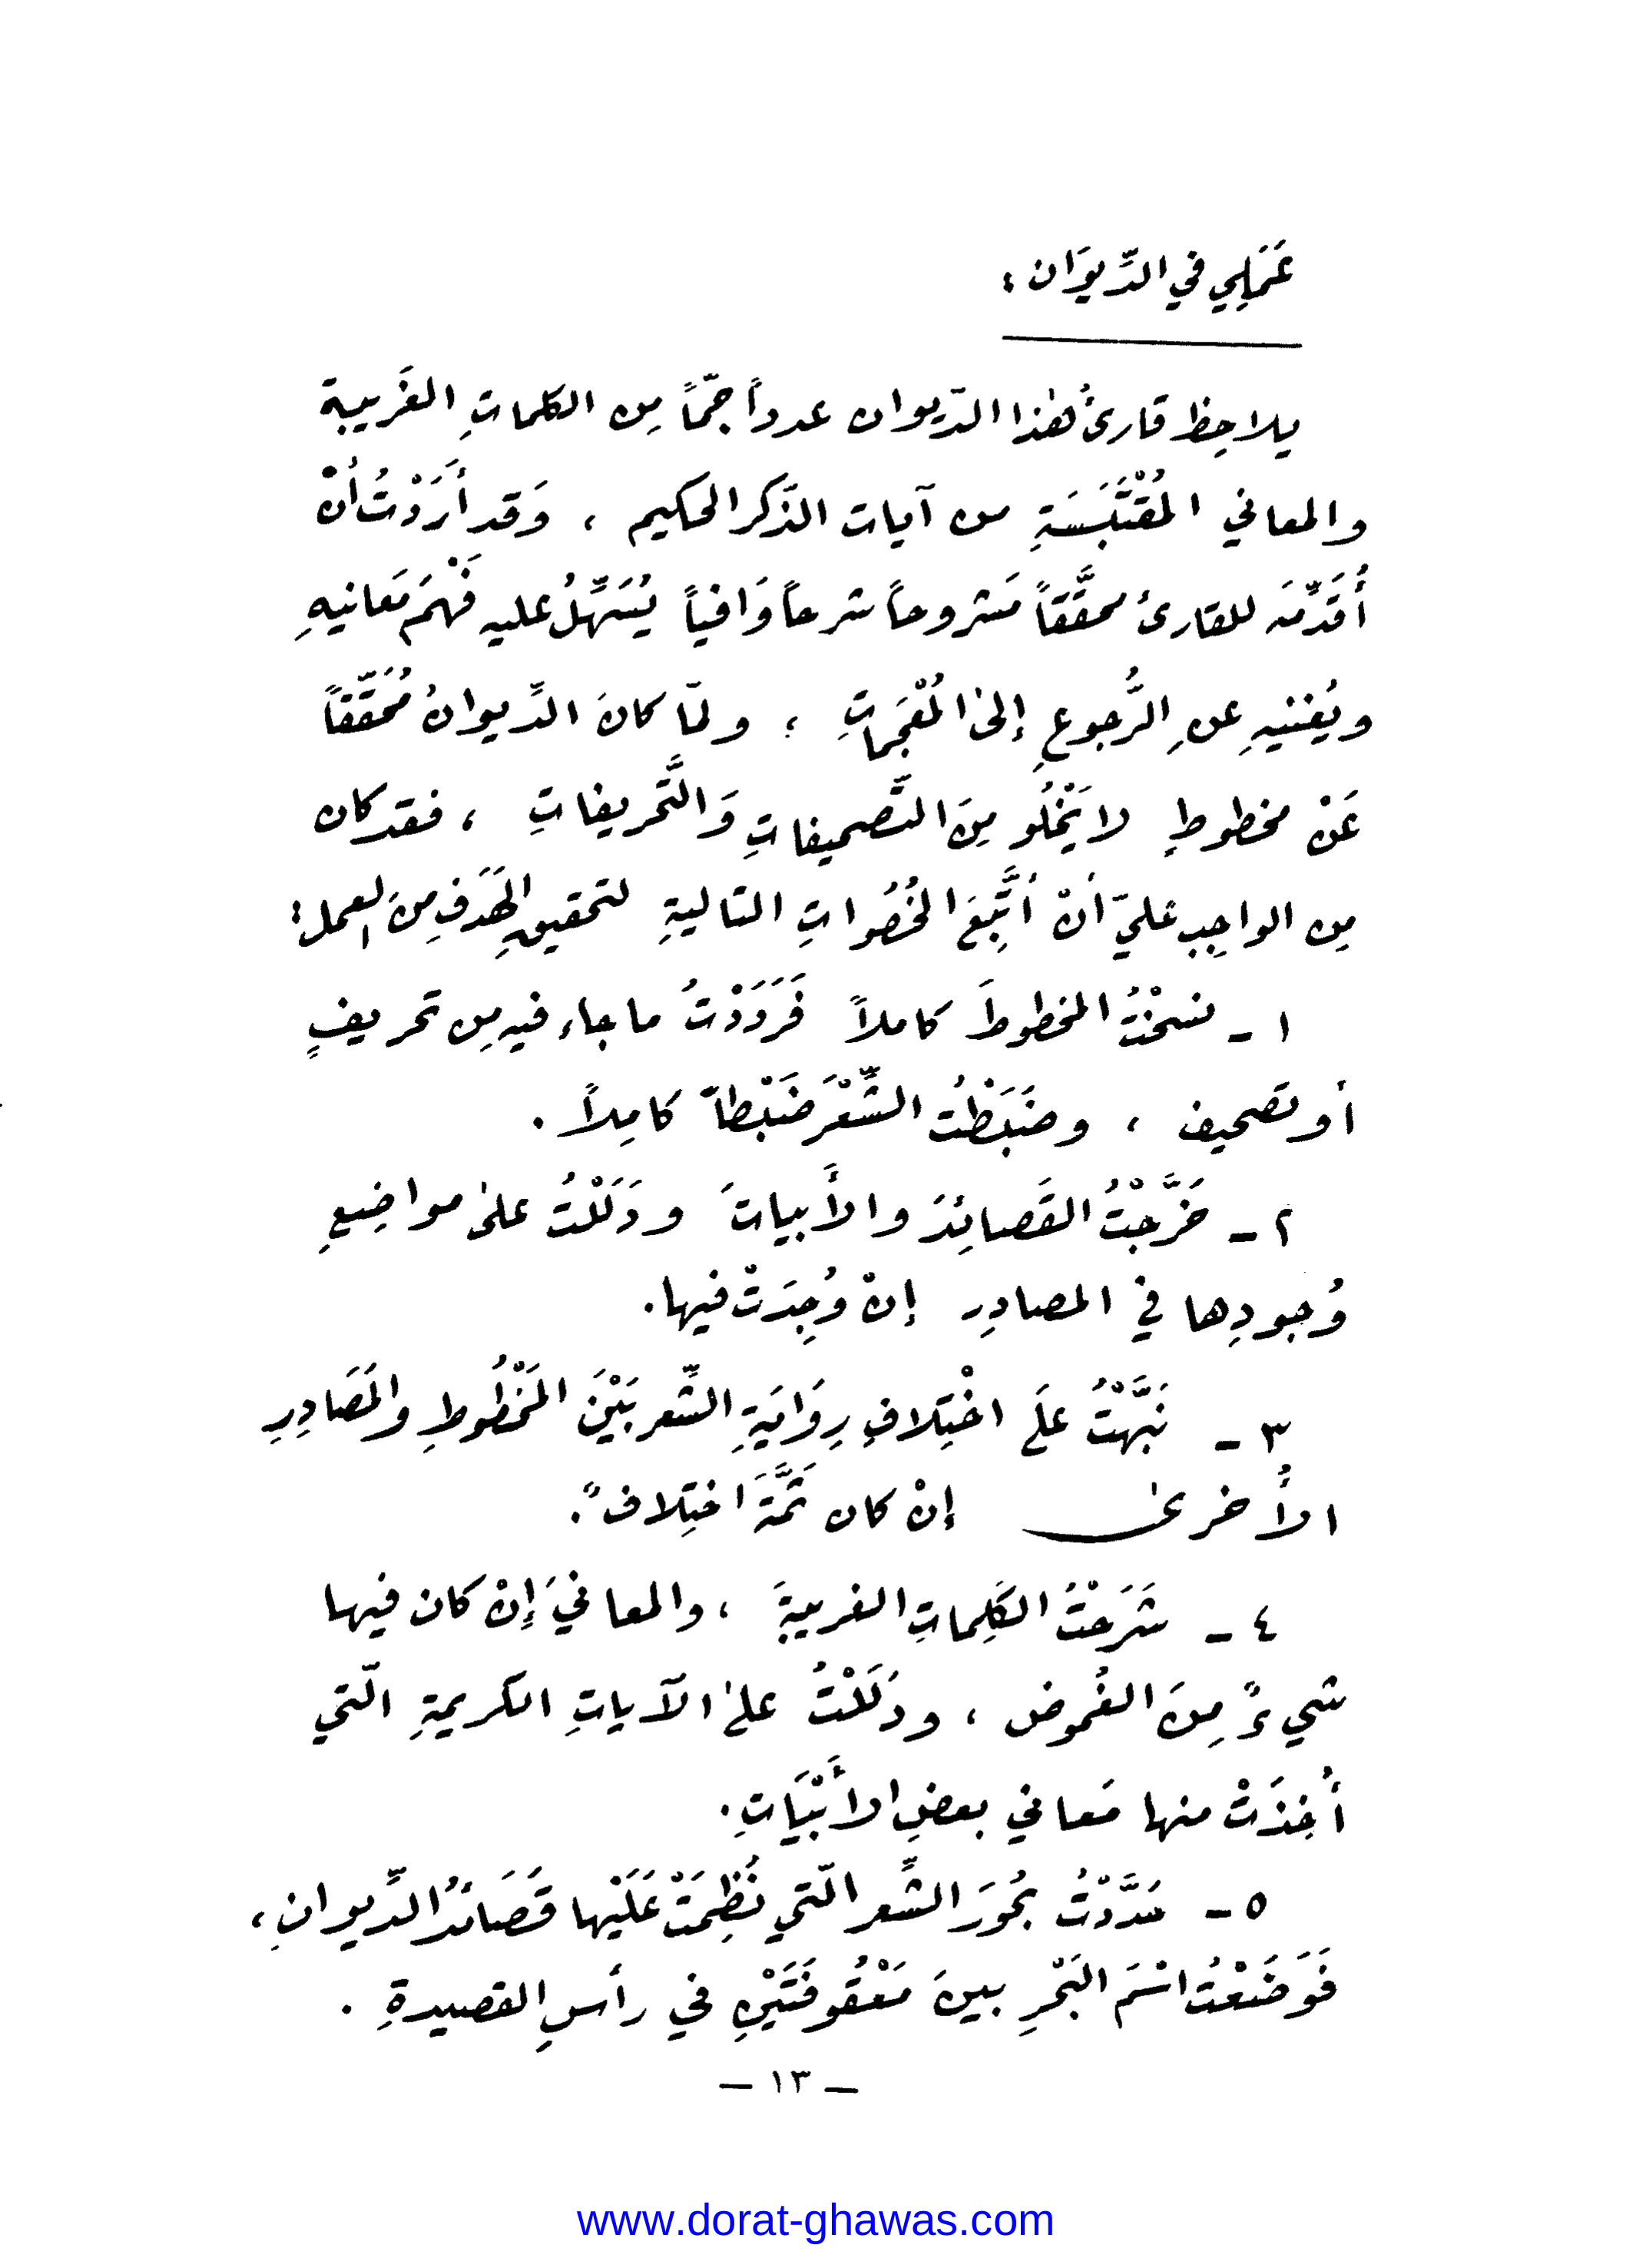 عَمَلِي في الدِّيوَان :
يلاحِظ قارئُ هٰذا الدّيوان عدداً جمّاً مِن الكلماتِ الغَريبة
والمعاني المُقْتَبَسَةِ من آيات الذّكر الحكيم ، وَقد أَرَدْتُ أنْ
أُقَدِّمَه للقارئ محقَّقاً مَشروحاً شرحاً وَافياً يُسَهِّلُ عليه فَهْمَ مَعانيهِ
ويُغنيهِ عنِ الرُّجوعِ إلى المُعْجَماتِ ؛ ولمّا كانَ الدِّيوانُ مُحَقّقاً
عَنْ مخطوطٍ لا يَخْلُو مِنَ التَّصحيفاتِ وَالتَّحريفاتِ ، فقد كان
مِن الواجِب عليّ أنْ أتَّبِعَ الخُطُواتِ التاليةِ لتحقيقِ الهَدَفِ مِنَ العمل :
١ - نسخْتُ المخطوطَ كاملاً فَرَدَدْتُ ما جاء فيه مِن تحريفٍ
أو تصحيف ، وضَبَطْتُ الشِّعْرَ ضَبْطاً كامِلاً .
٢ - خَرَّجْتُ القَصائِدَ والأَبياتَ ودَلَلْتُ على مواضِيعِ
وُجودِها في المصادِرِ إنْ وُجِدَتْ فيها .
٣ - نَبَّهْتُ علَى اخْتِلافِ رِوَايَةِ الشّعر بَيْنَ المَخْطُوطِ والمَصَادِرِ
الأُخرىٰ إنْ كان ثَمَّةَ اختِلافٌ .
٤ - شَرَحْتُ الكَلِماتِ الغريبةَ ، والمعانيَ إنْ كان فيها
شيءٌ مِنَ الغُموض ، ودَلَلْتُ علىٰ الآياتِ الكريمةِ الّتي
أُخِذَتْ منها مَعاني بعضِ الأَبْيَاتِ .
٥ - حَدَّدْتُ بُحُورَ الشِّعر الّتي نُظِمَتْ عَلَيْها قَصَائدُ الدِّيوانِ ،
فَوَضَعْتُ اسْمَ البَحْرِ بينَ مَعْقُوفَتَيْنِ في رأسِ القصيدةِ .
— ١٣ —
www.dorat-ghawas.com